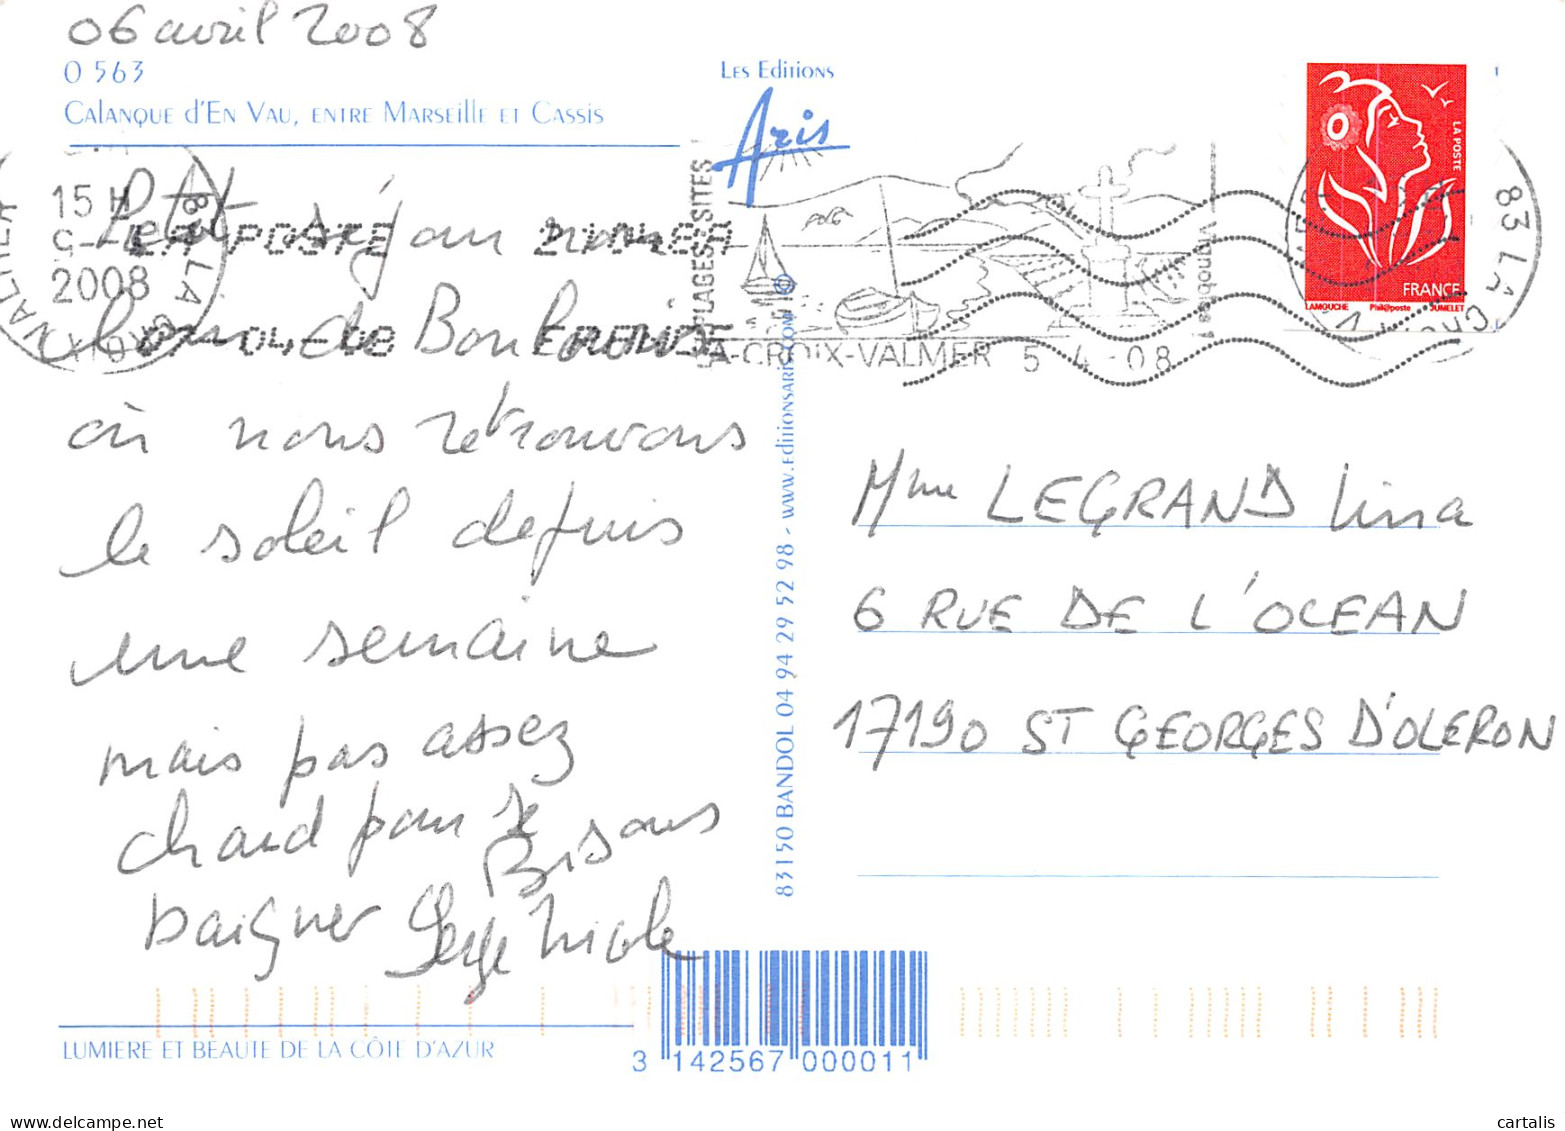 06 avril 2008
O 563
Calanque d'En Vau, entre Marseille et Cassis
Les Editions
Aris
Petit séjour au nom
de Bon
où nous retrouvons
le soleil depuis
une semaine
mais pas assez
chaud pour se
baigner
Bisous
Serge Nicole
15 H
2008
LA POSTE
PLAGES-SITES
Vignobles
LA-CROIX-VALMER 5-4-08
83 LA CROIX VALMER
LA POSTE
FRANCE
LAMOUCHE Phil@poste JUMELET
83150 BANDOL 04 94 29 52 98 - www.editionsaris.com ©
Mme LEGRAND Lina
6 RUE DE L'OCEAN
17190 ST GEORGES D'OLERON
LUMIERE ET BEAUTE DE LA CÔTE D'AZUR
3 142567 000011
cartalis
www.delcampe.net